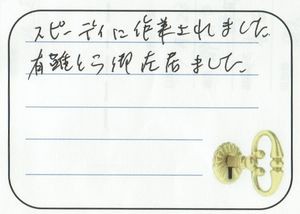 スピーディに作業されました。
有難とう御座居ました。